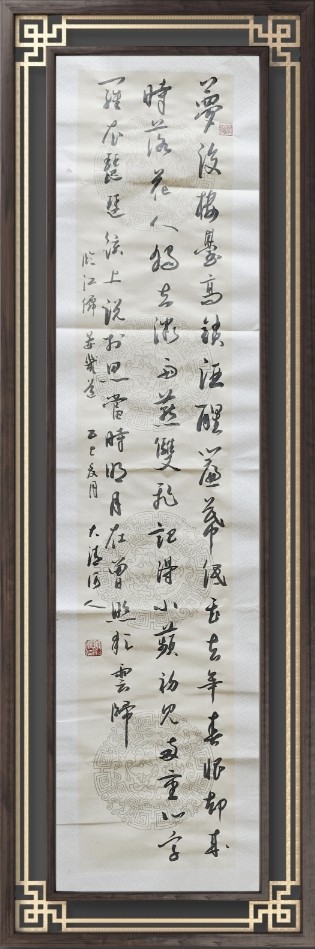 夢後樓臺高鎖酒醒簾幕低垂去年春恨却來
時落花人獨立微雨燕雙飛記得小蘋初見兩重心字
羅衣琵琶絃上說相思當時明月在曾照彩雲歸
臨江僊 晏幾道 乙巳夏月 大清河人